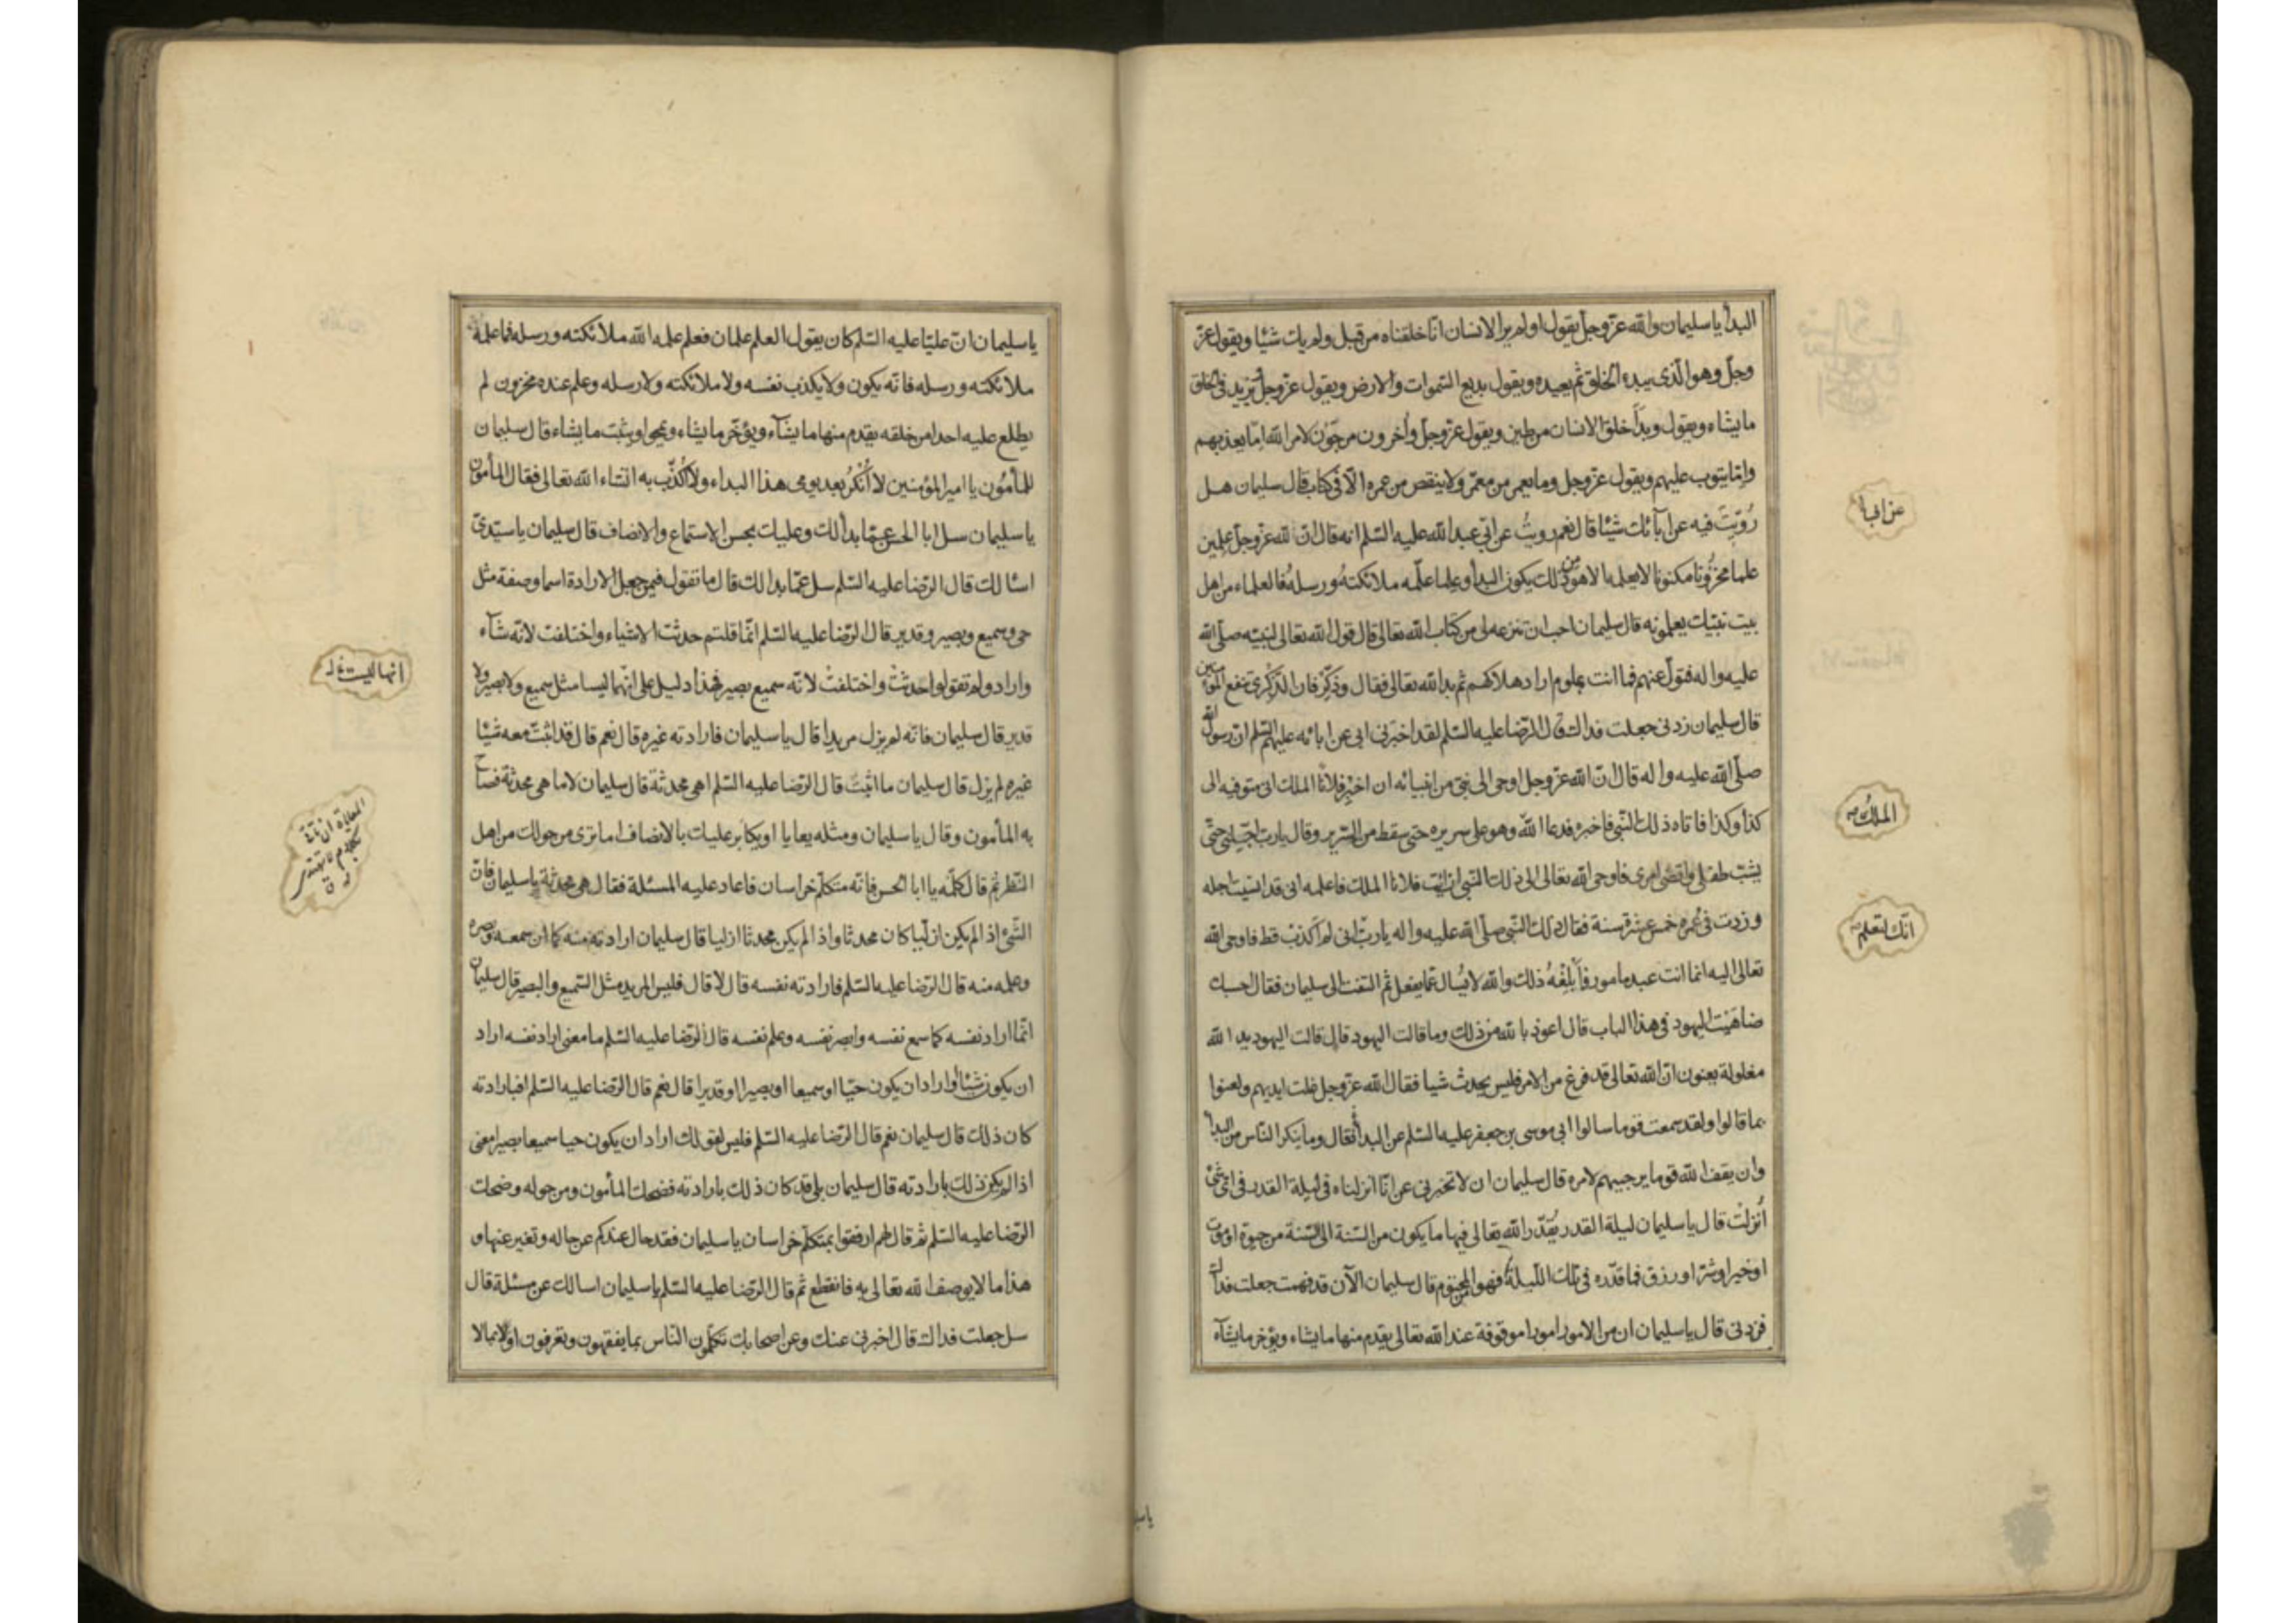 البدأ يا سليمان والله عزّ وجلّ يقول اولم ير الانسان انّا خلقناه من قبل ولم يك شيئا ويقول عزّ
وجلّ وهو الّذى يبدء الخلق ثم يعيده ويقول بديع السّموات والارض ويقول عزّ وجلّ يزيد فى الخلق
ما يشاء ويقول وبدأ خلق الانسان من طين ويقول عزّ وجلّ وآخرون مرجون لامر الله امّا يعذبهم
وامّا يتوب عليهم ويقول عزّ وجل وما يعمر من معمّر ولا ينقص من عمره الّا فى كتاب قال سليمان هل
رُوّيتَ فيه عن آبائك شيئا قال نعم رويتُ عن ابى عبد الله عليه السّلم انه قال انّ لله عزّ وجلّ علمين
علما مخزونا مكنونا لا يعلمه الا هو من ذلك يكون البدأ وعلما علّمه ملائكتهُ ورسلهُ فالعلماء من اهل
بيت نبيّك يعلمونه قال سليمان احب ان تنزعه لى من كتاب الله تعالى قال قول الله تعالى لنبيّه صلّى الله
عليه واله فتولّ عنهم فما انت بملوم اراد هلاكهم ثم بدا لله تعالى فقال وذكِّر فان الذّكرى تنفع المؤمنين
قال سليمان زدنى جعلت فداك قال الرّضا عليه السّلم لقد اخبرنى ابى عن ابائه عليهم السّلم انّ رسول الله
صلّى الله عليه واله قال انّ الله عزّ وجل اوحى الى نبىّ من انبيائه ان اخبِر فلانًا الملك انى متوفيه الى
كذا وكذا فاتاه ذلك النّبى فاخبره فدعا الله وهو على سريره حتى سقط من السّرير وقال يا ربّ اجّلنى حتّى
يشبّ طفلى واقضى امرى فاوحى الله تعالى الى ذلك النّبى ان ائت فلانا الملك فاعلمه انى قد انسيت اجله
وزدت فى عُمره خمس عشرة سنة فقال ذلك النّبى صلّى الله عليه واله يا ربّ انك لتعلم انى لم اكذب قط فاوحى الله
تعالى اليه انما انت عبد مامور فأبلِغهُ ذلك والله لا يُسال عمّا يفعل ثم التفت الى سليمان فقال احسبك
ضاهَيت اليهود فى هذا الباب قال اعوذ بالله من ذلك وما قالت اليهود قال قالت اليهود يد الله
مغلولة يعنون انّ الله تعالى قد فرغ من الامر فليس يحدث شيا فقال الله عزّ وجل غلت ايديهم ولعنوا
بما قالوا ولقد سمعت قوما سالوا ابى موسى بن جعفر عليه السّلم عن البدأ فقال وما ينكر النّاس من البدأ
وان يقف الله قوما يرجيهم لامره قال سليمان ان لا تخبرنى عن انّا انزلناه فى ليلة القدر فى اىّ شئ
اُنزلت قال يا سليمان ليلة القدر يُقدّر الله تعالى فيها ما يكون من السّنة الى السّنة من حيوة او موت
او خير او شرّ او رزق فما قدّره فى تلك اللّيلة فهو المحتوم قال سليمان الآن قد فهمت جعلت فداك
فزدنى قال يا سليمان ان من الامور امورا موقوفة عند الله تعالى يقدم منها ما يشاء ويؤخر ما يشآء
الملك
انّك لتعلم
يا سليمان انّ عليّا عليه السّلم كان يقول العلم علمان فعلم علمه الله ملائكته ورسله فما علمه
ملائكته ورسله فانّه يكون ولا يكذب نفسه ولا ملائكته ولا رسله وعلم عنده مخزون لم
يطلع عليه احدا من خلقه يقدم منها ما يشآء ويؤخّر ما يشاء ويمحو ويثبت ما يشاء قال سليمان
للمأمُون يا امير المؤمنين لا اُنكرُ بعد يومى هذا البداء ولا اُكذّب به انشاء الله تعالى فقال المأمون
يا سليمان سل ابا الحسن عمّا بدأ لك وعليك بحسن الاستماع والانصاف قال سليمان يا سيّدىّ
اسألك قال الرّضا عليه السّلم سل عمّا بدا لك قال ما تقول فيمن جعل الارادة اسما وصفة مثل
حى وسميع وبصير وقدير قال الرّضا عليه السّلم انّما قلتم حدثت الاشياء واختلفت لانّه شآء
واراد ولم تقولوا حدثتْ واختلفتْ لانّه سميع بصير فهذا دليل على انّهما ليسا مثل سميع ولا بصير ولا
قدير قال سليمان فانّه لم يزل مريدا قال يا سليمان فارادته غيره قال نعم قال فقد اثبتّ معه شيئا
غيره لم يزل قال سليمان ما اثبتّ قال الرّضا عليه السّلم اهى محدثة قال سليمان لا ما هى محدثة فصاح
به المأمون وقال يا سليمان ومثله يعايا او يكابر عليك بالانصاف اما ترى من حولك من اهل
النّظر ثم قال كلّمه يا ابا الحسن فانّه متكلّم خراسان فاعاد عليه المسئلة فقال هى محدثة يا سليمان فانّ
الشّئ اذا لم يكن ازليا كان محدثا واذا لم يكن محدثا كان ازليا قال سليمان ارادته منه كما ان سمعه وبصره
وعلمه منه قال الرّضا عليه السّلم فارادته نفسه قال لا قال فليس المريد مثل السّميع والبصير قال سليمان
انّما اراد نفسه كما سمع نفسه وابصر نفسه وعلم نفسه قال الرّضا عليه السّلم ما معنى اراد نفسه اراد
ان يكون شيئا او اراد ان يكون حيّا او سميعا او بصيرا او قديرا قال نعم قال الرّضا عليه السّلم افبارادته
كان ذلك قال سليمان نعم قال الرّضا عليه السّلم فليس لقولك اراد ان يكون حيا سميعا بصيرا معنى
اذا لم يكن ذلك بارادته قال سليمان بلى قد كان ذلك بارادته فضحك المأمون ومن حوله وضحك
الرّضا عليه السّلم ثم قال لهم ارفقوا بمتكلّم خراسان يا سليمان فقد حال عندكم عن حاله وتغير عنها و
هذا ما لا يوصف الله تعالى به فانقطع ثم قال الرّضا عليه السّلم يا سليمان اسالك عن مسئلة قال
سل جعلت فداك قال اخبرنى عنك وعن اصحابك تكلّمون النّاس بما يفقهون وتعرفون او بما لا